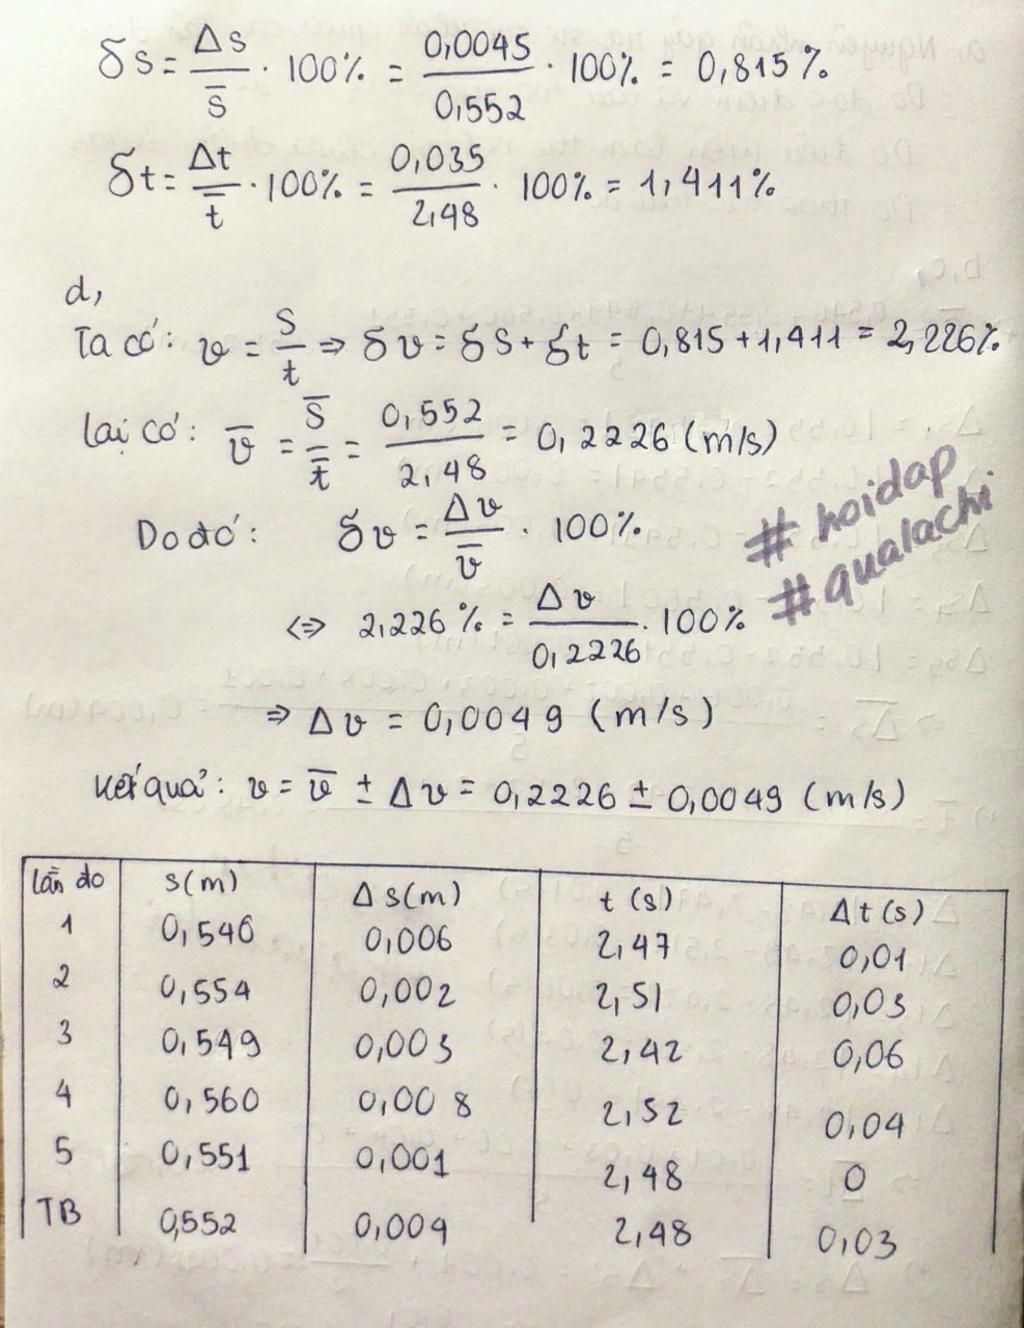 δs = Δs/s̅ · 100% = 0,0045/0,552 · 100% = 0,815%
δt = Δt/t̅ · 100% = 0,035/2,48 · 100% = 1,411%
d,
Ta có: v = s/t ⇒ δv = δs + δt = 0,815 + 1,411 = 2,226%
Lại có: v̅ = s̅/t̅ = 0,552/2,48 = 0,2226 (m/s)
Do đó: δv = Δv/v̅ · 100%
#hoidap
#qualachi
⇔ 2,226% = Δv/0,2226 · 100%
⇒ Δv = 0,0049 (m/s)
Kết quả: v = v̅ ± Δv = 0,2226 ± 0,0049 (m/s)
Lần đo s(m) Δs(m) t(s) Δt(s)
1 0,546 0,006 2,47 0,01
2 0,554 0,002 2,51 0,03
3 0,549 0,003 2,42 0,06
4 0,560 0,008 2,52 0,04
5 0,551 0,001 2,48 0
TB 0,552 0,004 2,48 0,03